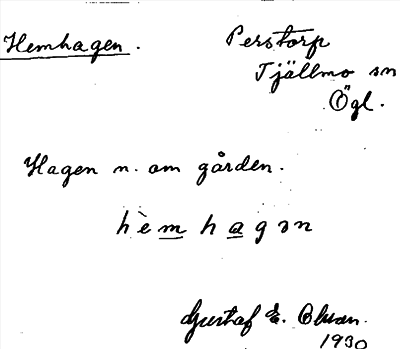 Hemhagen.
Perstorp
Tjällmo sn
Ögl.
Hagen n. om gården.
hèmhagən
Gustaf E. Olsson.
1930